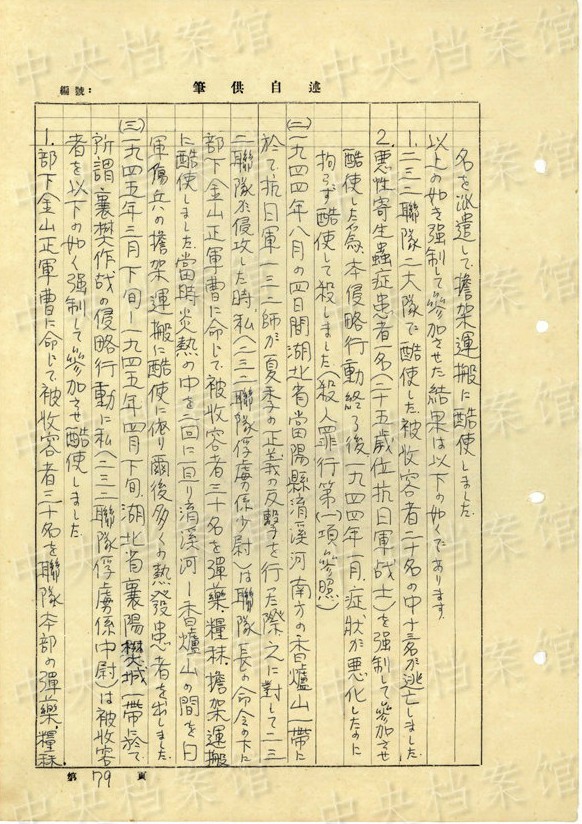 編號：
述自供筆
名を派遣して擔架運搬に酷使しました
以上の如き强制して參加させた結果は以下の如くであります.
1.二三二聯隊二大隊で酷使した被收容者二十名の中十三名が逃亡しました.
2.悪性寄生蟲症患者一名(二十五歲位抗日軍战士)を强制して參加させ
酷使した為、本侵略行動終了後一九四四年一月、症狀が悪化したのに
拘らず酷使して殺しました(殺人罪行第(一)項參照)
(二)一九四四年八月の四日間湖北省當陽縣淯溪河南方の香爐山一帶に
於て抗日軍一三二師が夏季の正義の反擊を行った際之に對して二三
二聯隊が侵攻した時.私(二三二聯隊俘虜係少尉)は聯隊長の命令の下に
部下金山正軍曹に命じて被收容者三十名を彈藥糧秣.擔架運搬
に酷使しました當時炎熱の中を一回に亘り淯溪河—香爐山の間を日
軍傷兵の擔架運搬に酷使に依り爾後多くの熱發患者を出しました.
(三)一九四五年三月下旬—一九四五年四月下旬.湖北省襄陽樊城一帶に於て
所謂襄樊作战の侵略行動に私(二三二聯隊俘虜係中尉)は被收容
者を以下の如く强制して參加させ酷使しました.
1.部下金山正軍曹に命じて被收容者三十名を聯隊本部の彈藥.糧秣.
第79頁
中央档案馆